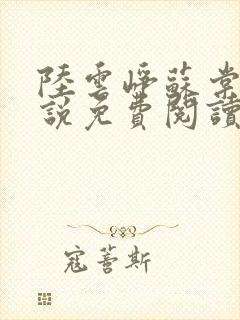 陸雲崢蘇棠
說免費閱讀
寇薔斯